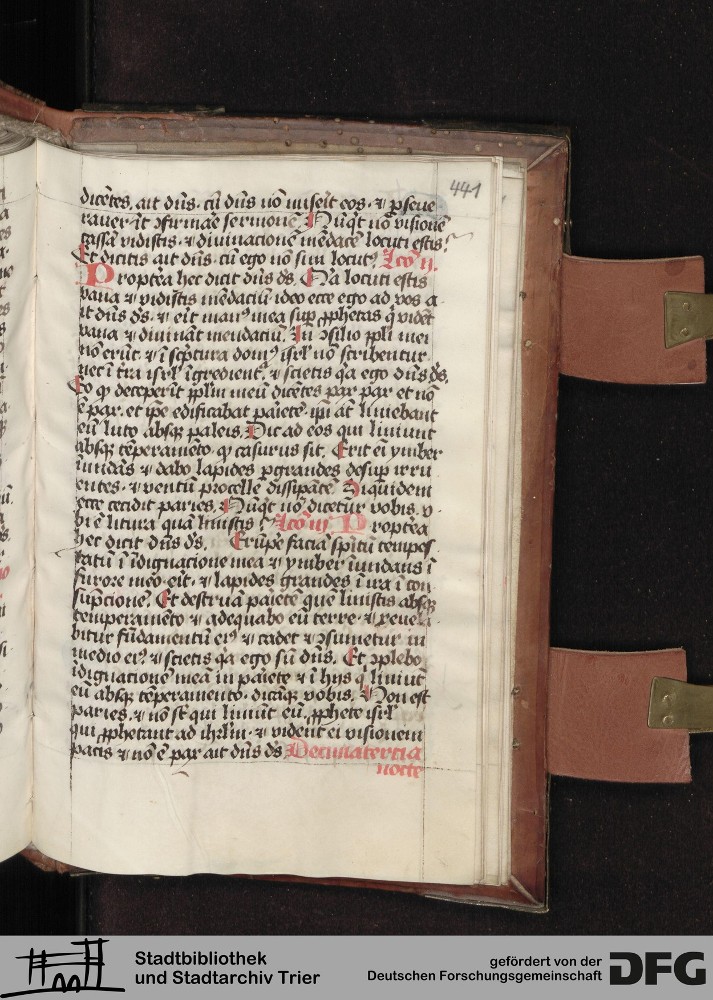 441
dicētes, ait dn̄s. cū dn̄s nō miserit eos. ⁊ ꝑseve
raver̄ūt ꝯfirmare sermonē Nūqͥt nō visionē
cassā vidistis. ⁊ divinacionē mēdacē locuti estis?
Et dicitis ait dn̄s. cū ego nō sun locutꝰ lco ij.
Proptea hec dicit dn̄s ds. Qa locuti estis
vana ⁊ vidistis mēdaciū. ideo ecce ego ad vos a
it dn̄s ds. ⁊ erit manꝰ mea sup ꝓphetas q̄ vidēt
vana ⁊ divināt mendaciū. In ꝯsilio ppli mei
nō erūt. ⁊ ī scptura domꝰ isrl nō scribentur.
nec ī tra isrl īgredient. ⁊ scietis qa ego dn̄s ds.
Eo qͩ deceperīt pplm meū dicētes pax pax et nō
ē pax. et ipe edificabat paietē. ipi at liniebant
eū luto absqꝫ paleis. Dic ad eos qui liniunt
absqꝫ tēperamēto. qͩ casurus sit. Erit ei ymber
iundās ⁊ dabo lapides pgrandes desup irru
entes. ⁊ ventū procelle dissipātē. Siquidem
ecce cecidit paries. Nūqͥt nō dicetur vobis. v
bi ē litura quā linistis? lco iij. Proptea
hec dicit dn̄s ds. Erūpe faciā spitū tempes
tatū ī īdignatione mea ⁊ ymber iundans ī
furore meo erit. ⁊ lapides grandes ī ira ī con
supcionē. Et destruā paietē quē linistis absqꝫ
temperamēto ⁊ adequabo eū terre. ⁊ revela
bitur fūdamentū eiꝰ ⁊ cadet ⁊ ꝯsumetur in
medio eiꝰ. ⁊ scietis qa ego sū dn̄s. Et ꝯplebo
īdignationē meā in paiete ⁊ ī hijs q̄ liniūt
eū absqꝫ tēperamento. dicāqꝫ vobis. Non est
paries. ⁊ nō sūt qui liniūt eū. ꝓphete isrl
qui ꝓphetant ad ihrlm. ⁊ vident ei visionem
pacis ⁊ nō ē pax ait dn̄s ds. Decimatercia
nocte
Stadtbibliothek
und Stadtarchiv Trier
gefördert von der
Deutschen Forschungsgemeinschaft
DFG